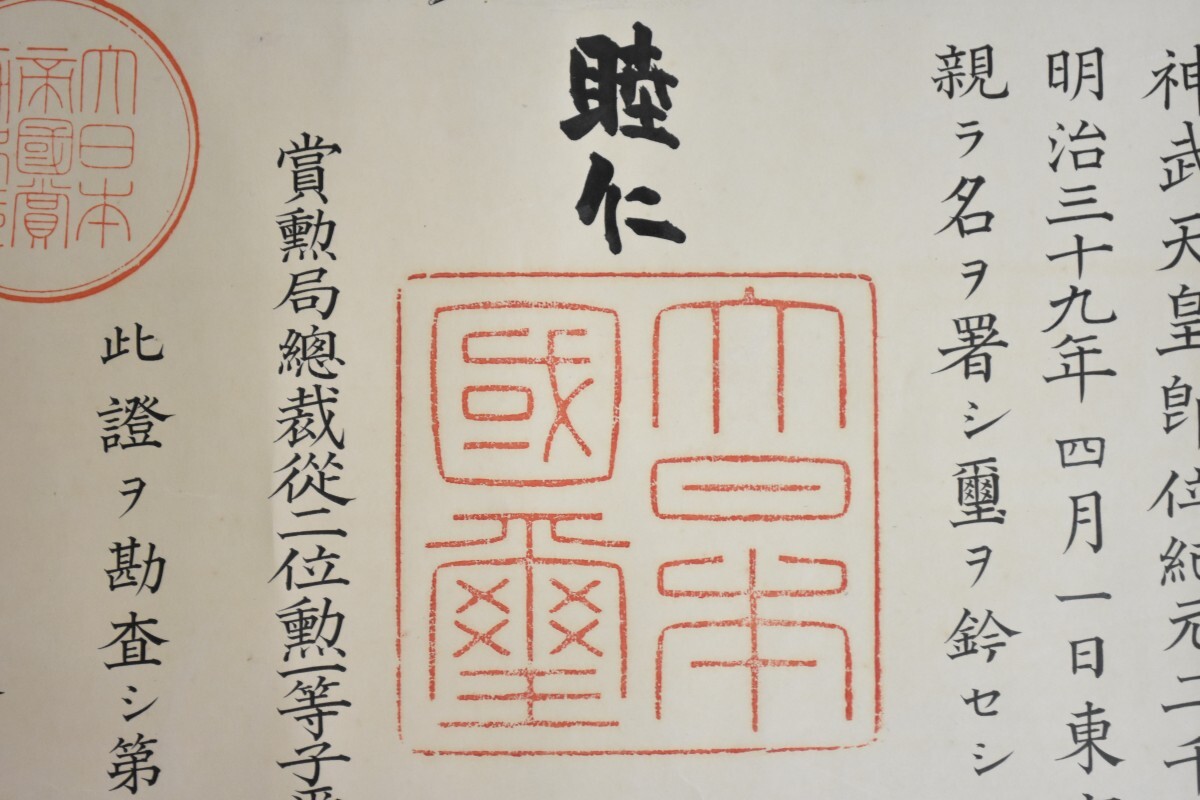 神武天皇卽位紀元二千
明治三十九年四月一日東
親ラ名ヲ署シ璽ヲ鈐セシ
睦仁
大日本
國璽
賞勲局總裁從二位勲一等子
此證ヲ勘査シ第
大日本
帝國賞